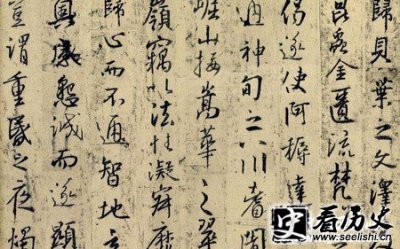 歸貝葉之文澤
昆蟲金匱流梵
偈遂使阿耨達
通神甸之八川耆闍
崛山接嵩華之翠
嶺竊以法性凝寂靡
歸心而不通智地玄
奧感懇誠而遂顯
豈謂重昏之夜燭
史 看历史
www.seelishi.cn